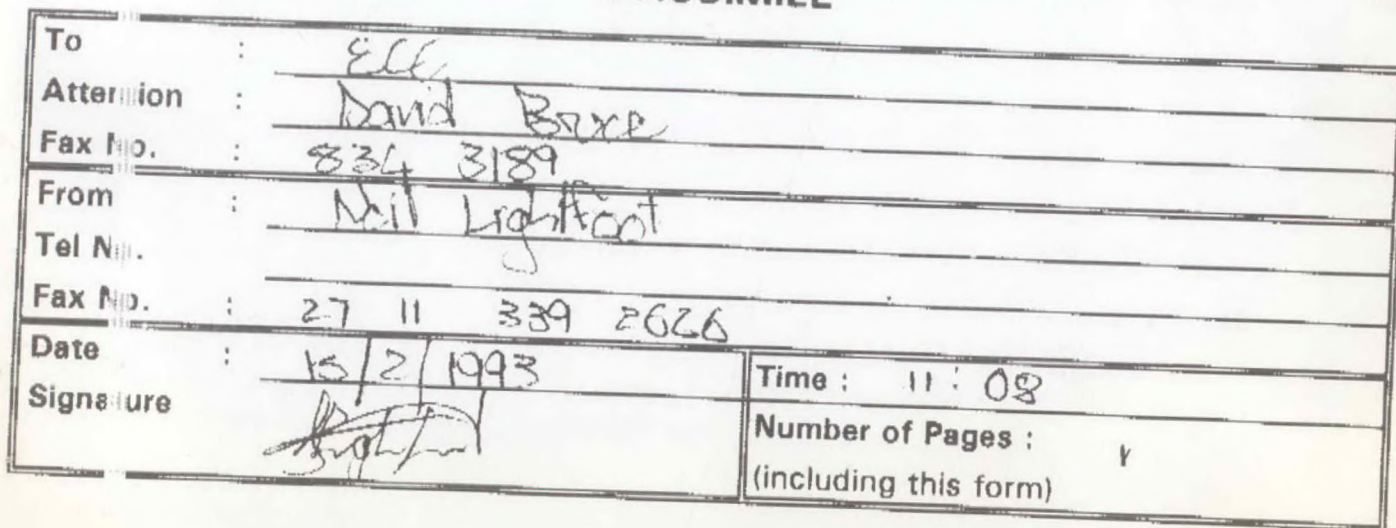 To :
Attention : David Bruce
Fax No. : 834 3189
From : Neil Lightfoot
Tel No.
Fax No. : 27 11 339 2626
Date : 15/2/1993
Time : 11:08
Signature
Number of Pages : 1
(including this form)